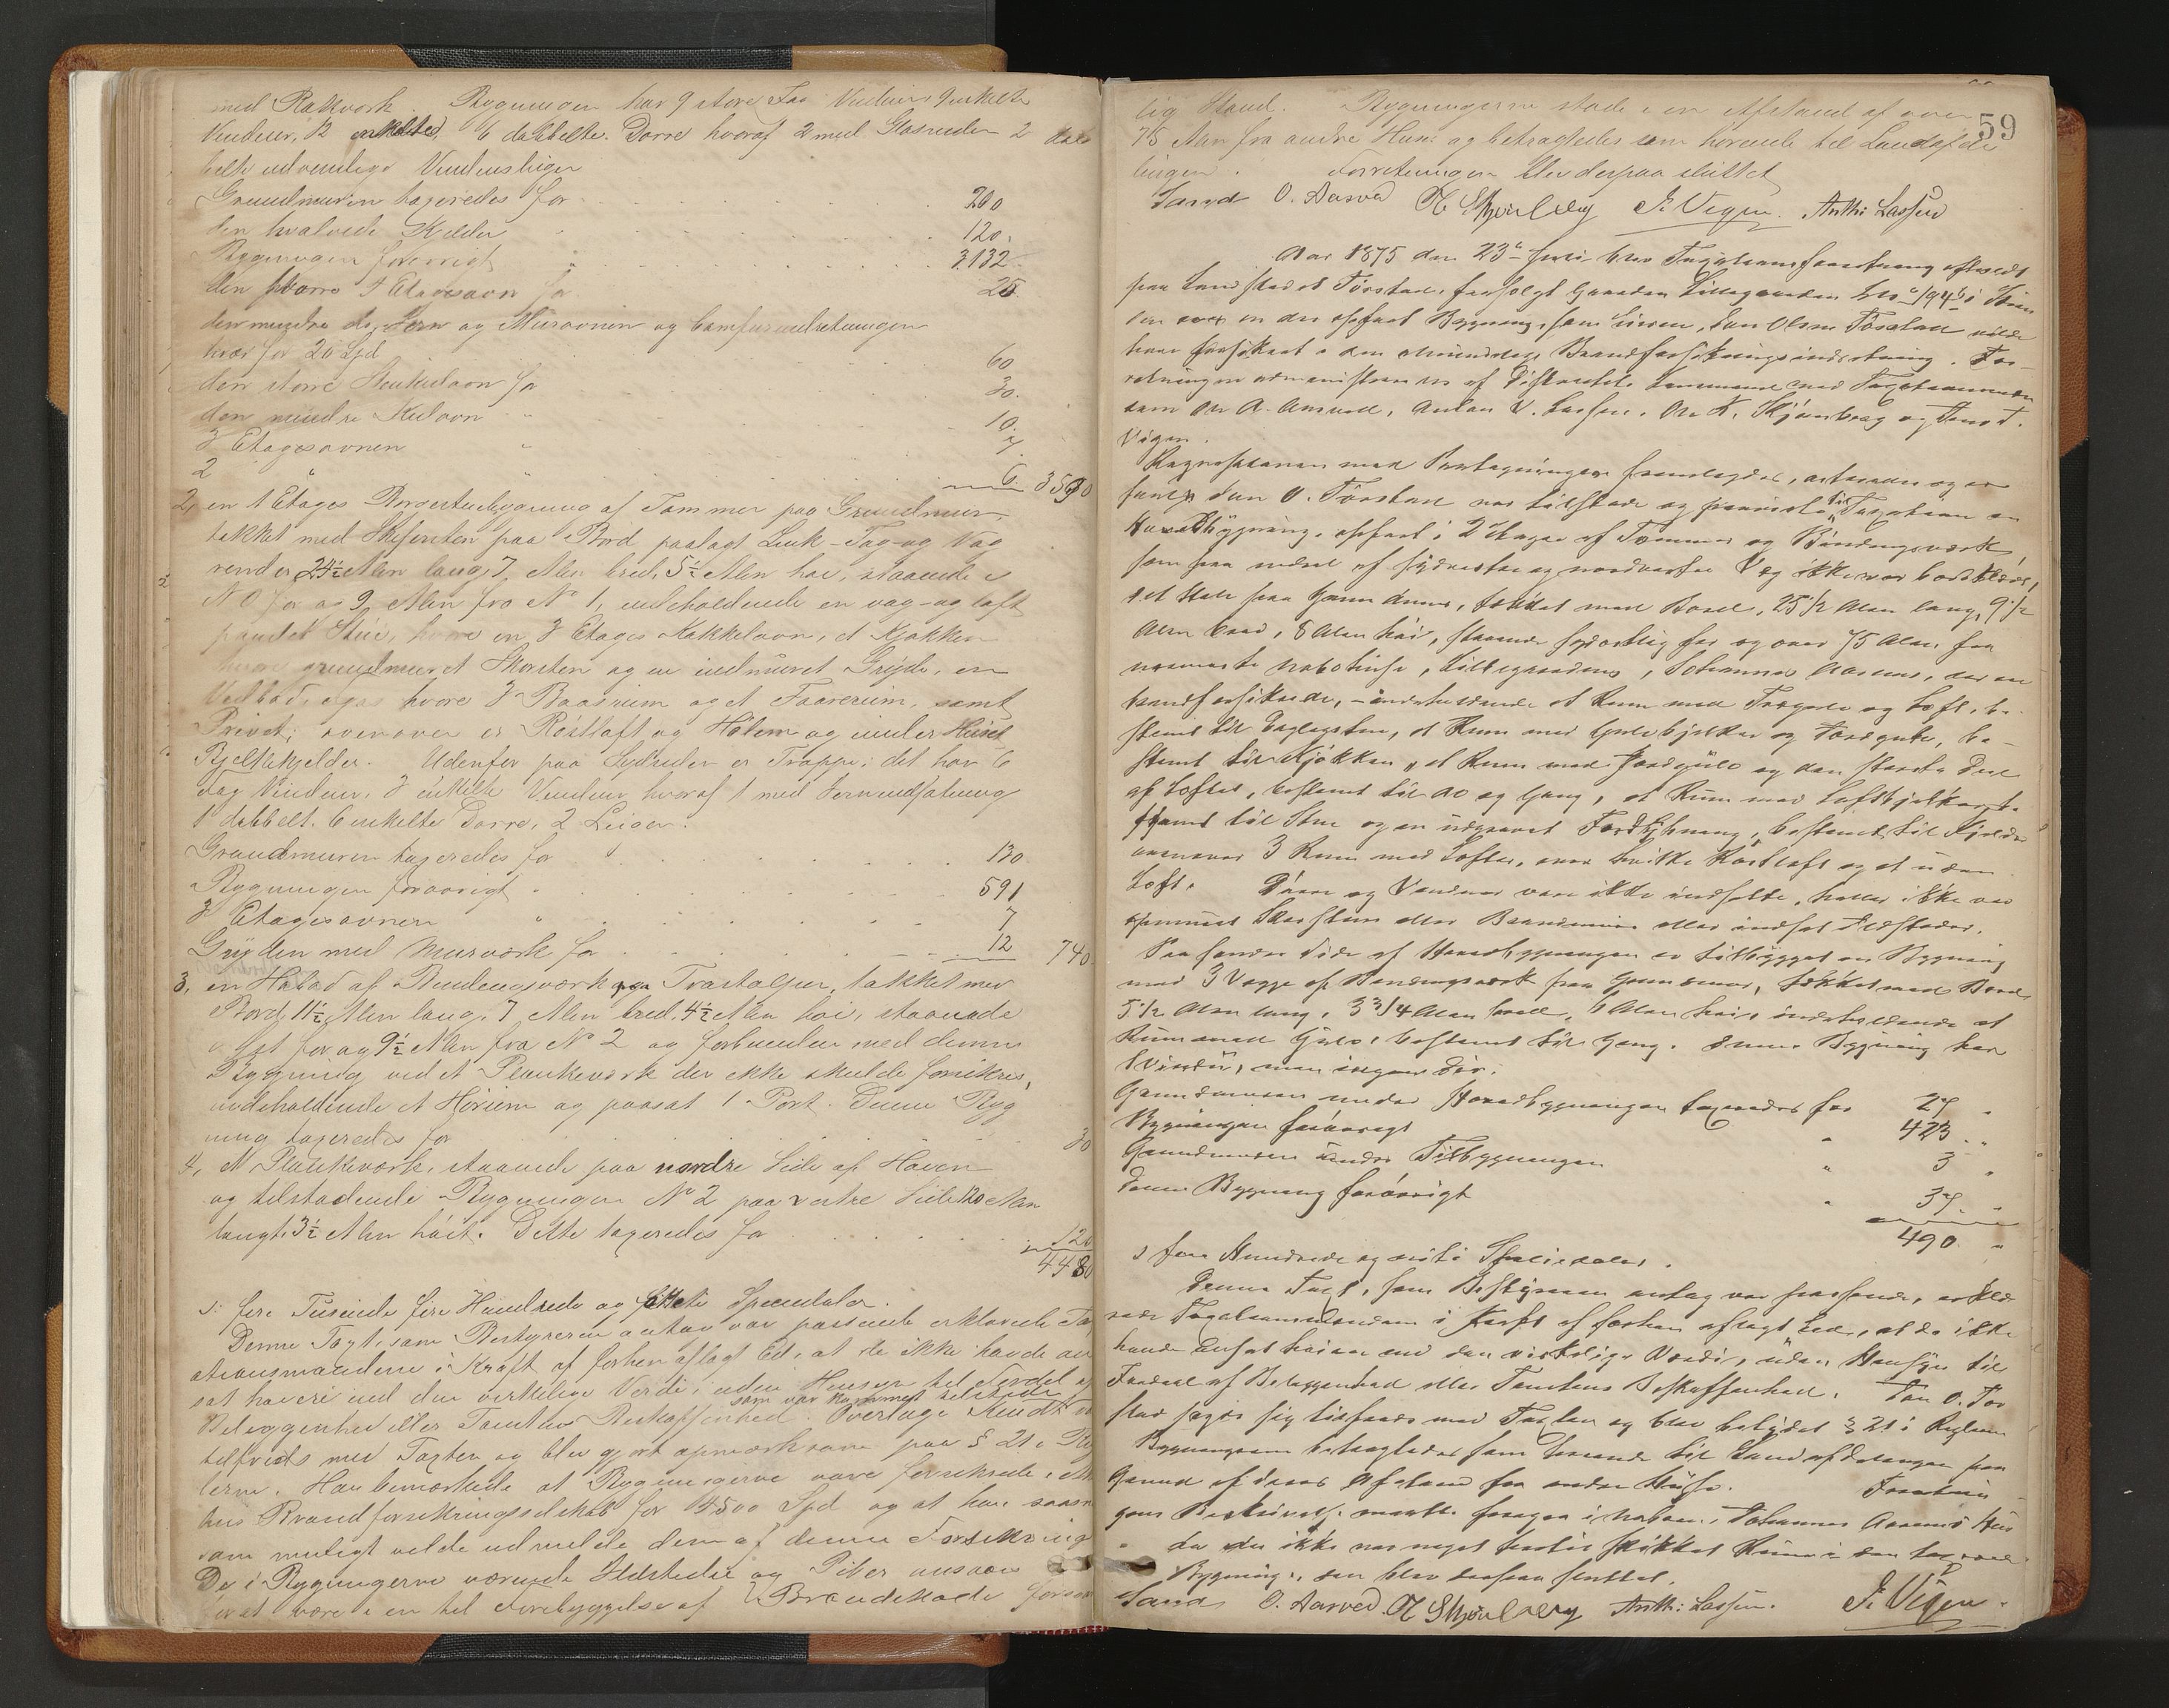 med Rakværk. Bygningen har 9 store Fag Vinduer 9 enkelte
Vinduer, 12 enkelte, 6 dobbelte Dørre hvoraf 2 med Glasruder 2 dob
belte udvendige Vindusluger
Grundmuren taxeredes for 200
den hvalvede Kjelder 120
Bygningen forøvrigt 3132
den større 3 Etagesovn for 25
den mindre do, Jern og Murovnen og Comfurindretningen
hver for 20 Spd 60
den større Stenkulovn for 30
den mindre Kulovn 10
3 Etagesovnen 7
2 " 6 3590
2, en 1 Etages Borgestuebygning af Tømmer paa Grundmur,
tækket med Skifersten paa Bord, paalagt Tag og Væg
24½ Alen lang, 7 Alen bred, 5½ Alen høi, staaende i
N O for og 9 Alen fra No 1, indeholdende en væg- og loft
pandet Stue, hvori en 3 Etages Kakkelovn, et Kjøkken
hvori grundmuret Skorsten og en indmuret Gryde, en
Vedbod, hvori 3 Baasrum og et Faarerum, samt
Privet; ovenover er Røstloft og Hølem og under Huset
Kjelder. Udenfor paa Sydsiden er Trappe; det har 6
Fag Vinduer, 3 enkelte Vinduer hvoraf 1 med Jernindfatning
1 dobbelt, 6 enkelte Dørre, 2 Luger.
Grundmuren taxeredes for 130
Bygningen forøvrigt 591
3 Etagesovnen 7
Gryden med Murværk for 12 740
3, en Høbod af Bindingsværk paa Træstolper, tækket med
Bord, 11½ Alen lang, 7 Alen bred, 4½ Alen høi, staaende
for og 9½ Alen fra No 2 og forbunden med denne
Bygning ved et Plankeværk der ikke skulde forsikres,
indeholdende et Hørum og paasat 1 Port. Denne Byg
ning taxeredes for 30
4, et Plankeværk, staaende paa nordre Side af Haven
og tilstødende Bygningen No 2 paa vestre Side 120 Alen
langt, 3½ Alen høit. Dette taxeredes for 120
4480
s: fire Tusinde fire Hundrede og otteti Speciedaler.
Denne Taxt, som Bestyreren antog var passende erklærede Ta
xtionsmændene i Kraft af forhen aflagt Ed, at de ikke havde an
sat høiere end den virkelige Værdi, uden Hensyn til Fordel af
som var kommet tilstede
Beliggenhed eller Tomtens Beskaffenhed. Overlæge
tilfreds med Taxten og blev gjort opmærksom paa § 21 i
lerne. Han bemærkede at Bygningerne vare forsikrede i
hus Brandforsikringsselskab for 4500 Spd og at han saasn
som muligt vilde udmelde dem af denne Forsikring
De i Bygningerne værende Ildsteder og Piber ansaaes
for at være i en til Forebyggelse af Brandskade forsvar
lig Stand. Bygningerne stode i en Afstand af over
59
75 Alen fra andre Huse og betragtedes som hørende til Landafde
lingen. Forretningen blev derpaa sluttet
Sand O. Aarvd J. Vigen. Anth: Lassen
Aar 1875 den 23de Juli blev Taxationsforretning afholdt
paa Landstedet Torstad, fraskilt Gaarden
en der opført Bygning, som Eieren, Jens Olsen Torstad vilde
have forsikret i den almindelige Brandforsikringsindretning. For-
retningen administreredes af Distriktets Lensmand med Taxationsmænd
som Ole A. Anton V. Lassen, Ole K. Skjønberg og
Vigen.
med fremlagdes, og en
Jens O. Torstad var tilstede og paaviste til Taxation en
Hovedbygning, opført i 2 Etager af Tømmer og Bindingsværk,
som paa endel af sydvestre og nordvestre Væg ikke var bordklædt,
paa Grundmur, tækket med Bord, 25½ Alen lang, 9½
Alen bred, 8 Alen høi, staaende sydostlig for og over 75 Alen fra
nærmeste Nabohus, Johannes Aasens, der er
brandforsikrede, - indeholdende et Rum med Trægulv og Loft, be-
stemt til Daglagstue, et Rum med Gulvbjelker og Jordgulv, be-
stemt til Kjøkken, et Rum med Jordgulv og den største Del
af Loftet, bestemt til do og Gang, et Rum med Loftbjelker be
stemt til Stue og en udgravet Jordhybning, bestemt til Kjelder
ovenover 3 Rum med Lofter, over hvilke Røstloft og et uden
Loft. Døre og Vinduer vare ikke indsatte, heller ikke var
opmuret Skorsten eller Brandmur eller indsat Ildsteder.
Paa søndre Side af Hovedbygningen er tilbygget en Bygning
med 3 Vægge af Bindingsværk paa Grundmur, tækket med Bord
5½ Alen lang, 3 3/4 Alen bred, 6 Alen høi, indeholdende et
Rum med Gulv, bestemt til Gang. Denne Bygning har
1 Vindu, men ingen Dør.
Grundmuren under Hovedbygningen taxeredes for 27 "
Bygningen forøvrigt " 423 "
Grundmuren under Tilbygningen " 3 "
Denne Bygning forøvrigt " 37 "
490 "
s fire Hundrede og niti Speciedaler.
Denne Taxt, som Bestyreren antog var passende, erklæ
rede Taxationsmændene i Kraft af forhen aflagt Ed, at de ikke
havde ansat høiere end den virkelige Værdi, uden Hensyn til
Fordeel af Beliggenhed eller Tomtens Beskaffenhed. Jens O. Tor
stad sagde sig tilfreds med Taxten og blev betydet § 21 i Reglerne
Bygningerne betragtedes som hørende til Landafdelingen paa
Grund af deres Afstand fra andre Huse. Forretnin
gens Beskrivelse maatte foregaa i Naboen, Johannes Aasens Hus
da der ikke var noget hertil skikket Rum i den taxerede
Bygning, den blev derpaa sluttet.
Sand O. Aarvd. Anth: Lassen. J. Vigen.